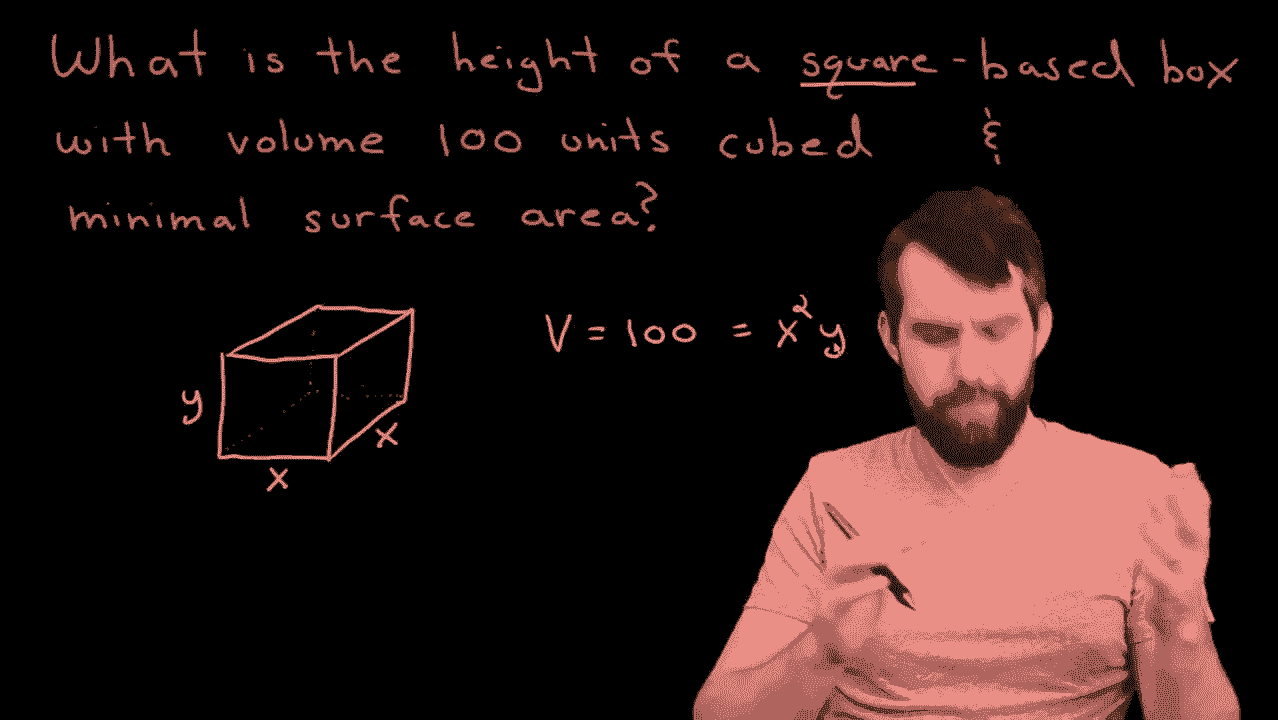 What is the height of a square-based box
with volume 100 units cubed &
minimal surface area?
V = 100 = x²y
y
x
x